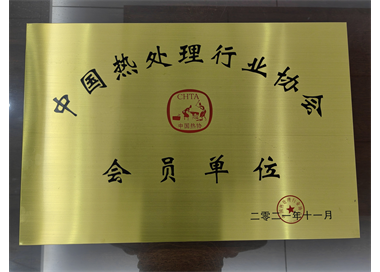 中国热处理行业协会
CHTA
中国热协
会员单位
二零二一年十一月